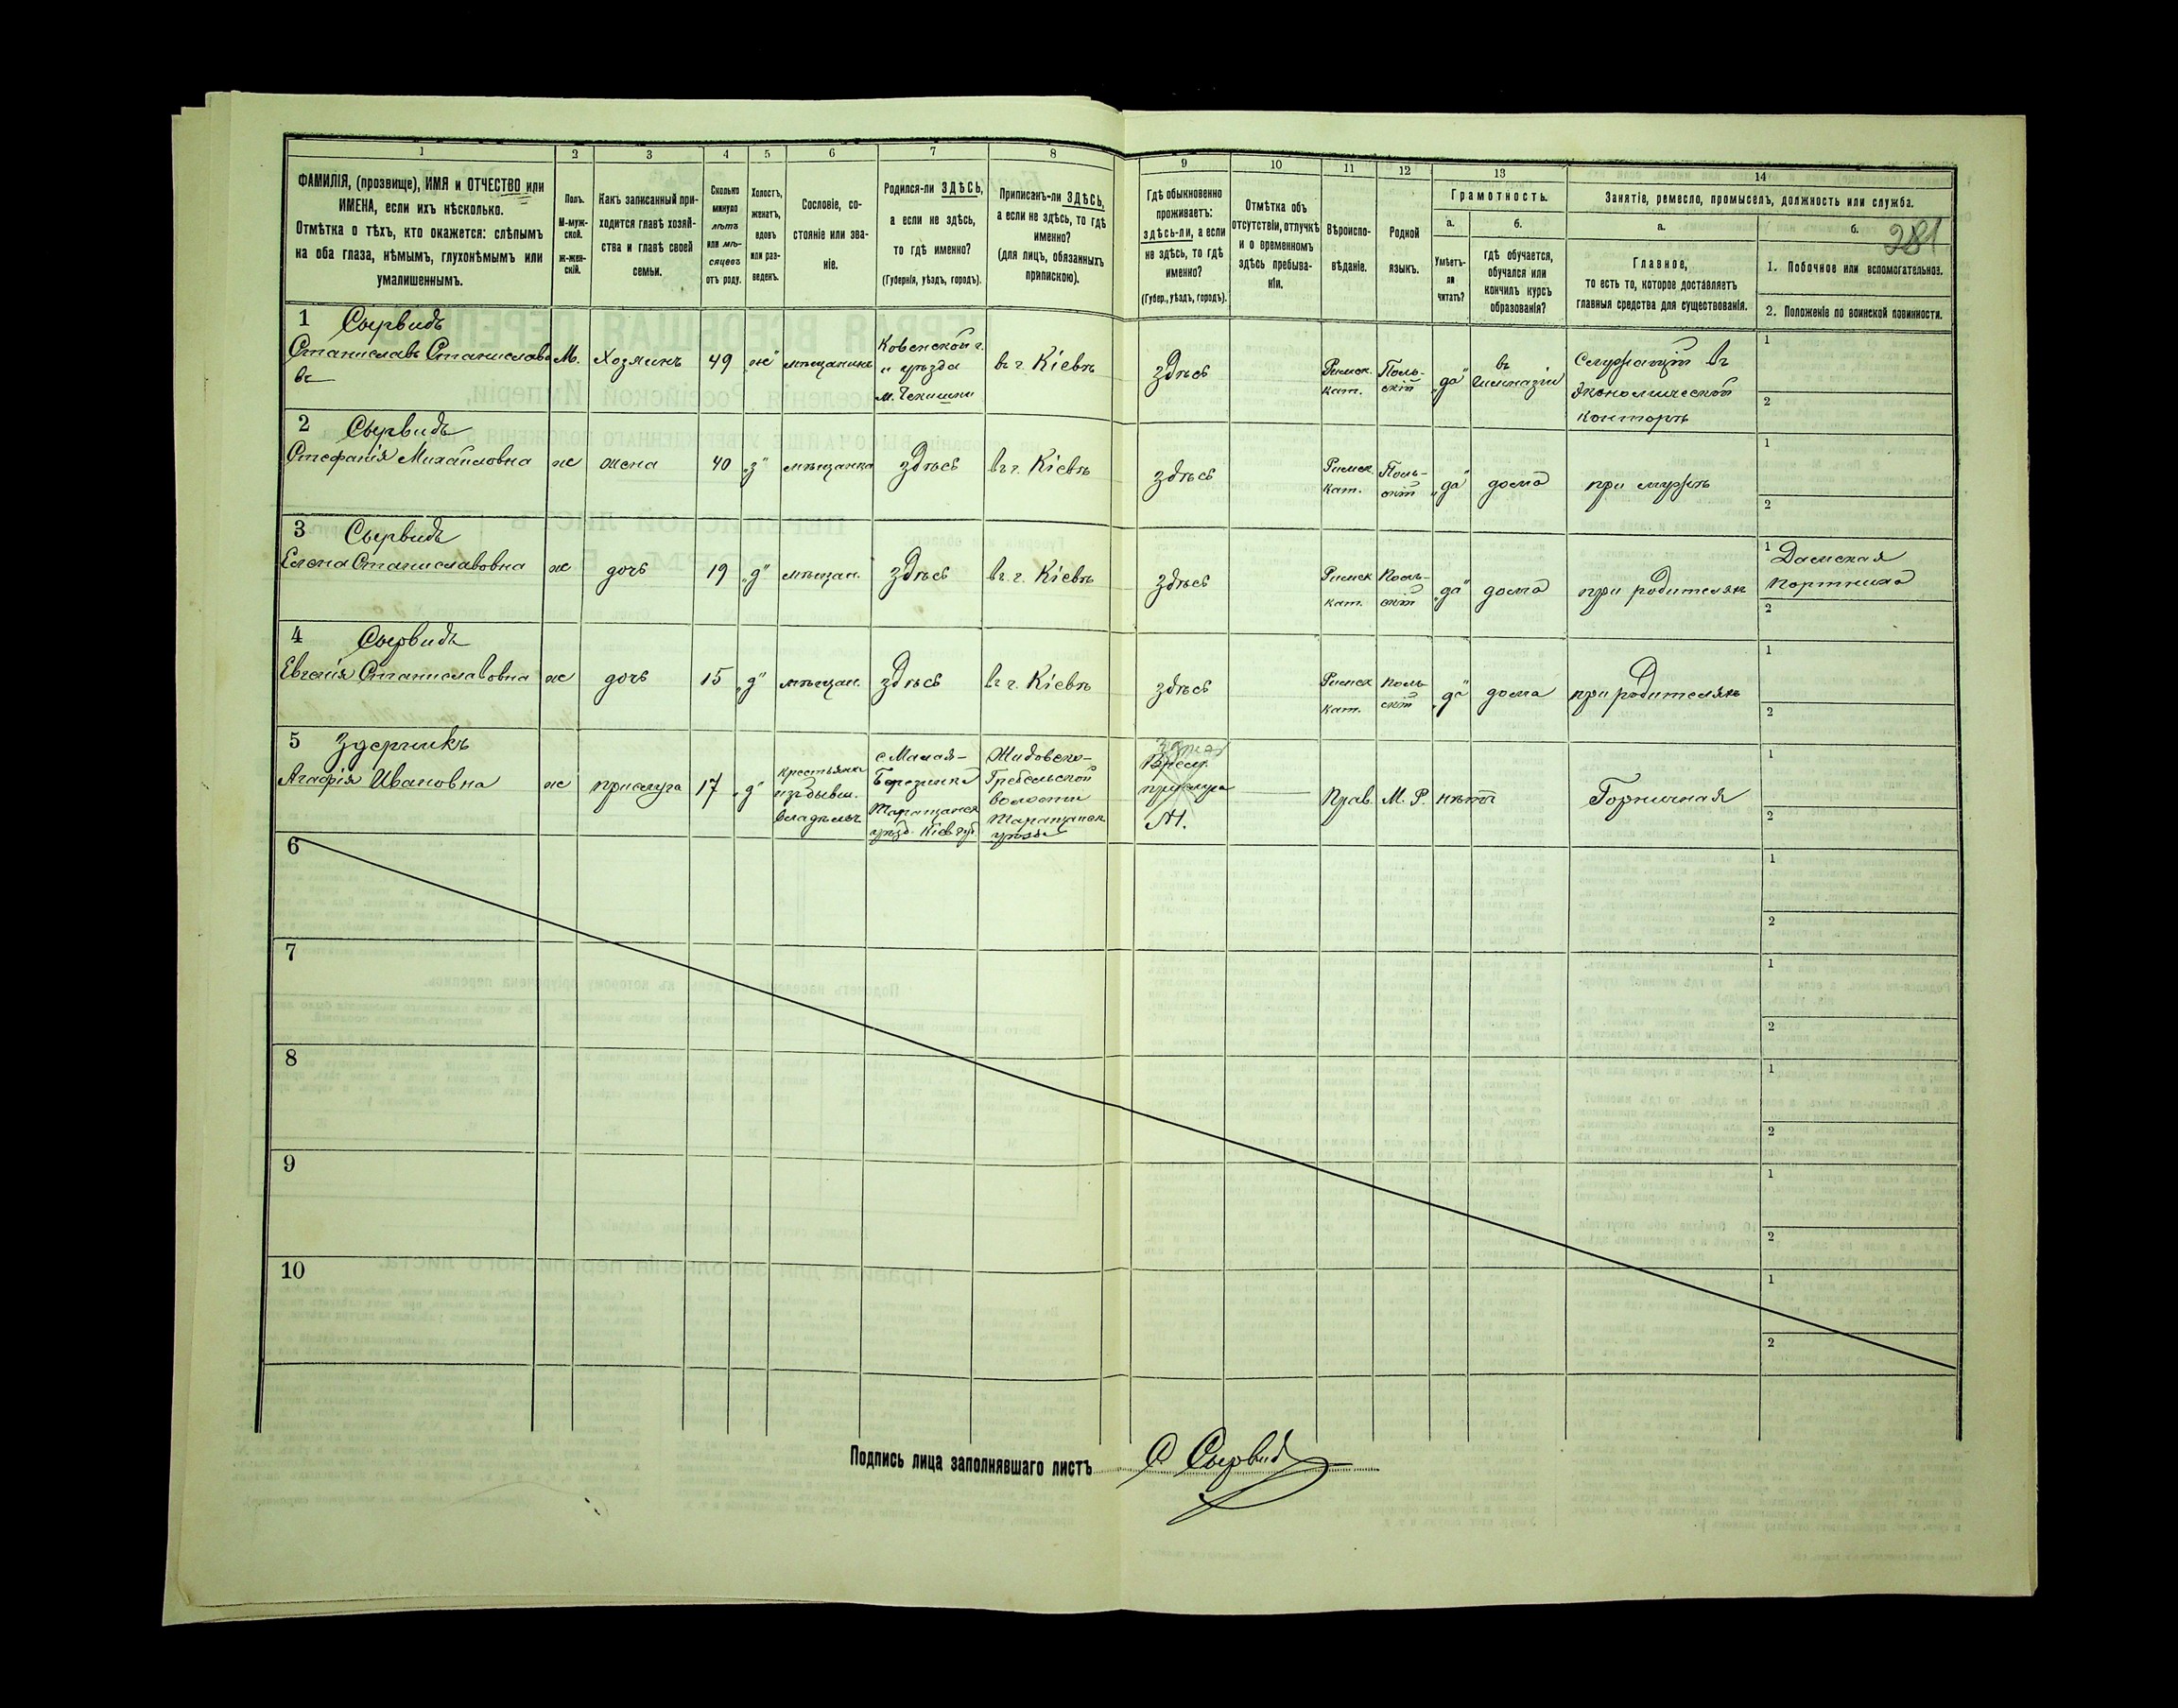 1 2 3 4 5 6 7 8 9 10 11 12 13 14
ФАМИЛІЯ, (прозвище), ИМЯ и ОТЧЕСТВО или
ИМЕНА, если ихъ нѣсколько.
Отмѣтка о тѣхъ, кто окажется: слѣпымъ
на оба глаза, нѣмымъ, глухонѣмымъ или
умалишеннымъ.
Полъ.
М-муж-
ской.
ж-жен-
скій.
Какъ записанный при-
ходится главѣ хозяй-
ства и главѣ своей
семьи.
Сколько
минуло
лѣтъ
или мѣ-
сяцевъ
отъ роду.
Холостъ,
женатъ,
вдовъ
или раз-
веденъ.
Сословіе, со-
стояніе или зва-
ніе.
Родился-ли ЗДѢСЬ,
а если не здѣсь,
то гдѣ именно?
(Губернія, уѣздъ, городъ).
Приписанъ-ли ЗДѢСЬ,
а если не здѣсь, то гдѣ
именно?
(для лицъ, обязанныхъ
припискою).
Гдѣ обыкновенно
проживаетъ:
здѣсь-ли, а если
не здѣсь, то гдѣ
именно?
(Губер., уѣздъ, городъ).
Отмѣтка объ
отсутствіи, отлучкѣ
и о временномъ
здѣсь пребыва-
ніи.
Вѣроиспо-
вѣданіе.
Родной
языкъ.
Грамотность.
а.
Умѣетъ-
ли
читать?
б.
гдѣ обучается,
обучался или
кончилъ курсъ
образованія?
Занятіе, ремесло, промыселъ, должность или служба.
а.
Главное,
то есть то, которое доставляетъ
главныя средства для существованія.
б.
281
1. Побочное или вспомогательное.
2. Положеніе по воинской повинности.
1 Сырвидъ
Станиславъ Станиславо
въ
М.
Хозяинъ
49
„ж"
мѣщанинъ
Ковенской г.
„ уѣзда
м. Чекишки
въ г. Кіевѣ
здѣсь
Римск.
кат.
Поль-
скій
„да"
въ
Гимназіи
Служащій въ
Экономической
конторѣ
1
2
2 Сырвидъ
Стефанія Михайловна
ж
жена
40
„з"
мѣщанка
здѣсь
въ г. Кіевѣ
здѣсь
Римск.
кат.
Поль-
скій
„да"
дома
при мужѣ
1
2
3 Сырвидъ
Елена Станиславовна
ж
дочь
19
„д"
мѣщан.
здѣсь
въ г. Кіевѣ
здѣсь
Римск
кат.
Поль-
скій
„да"
дома
при родителяхъ
1 Дамская
портниха
2
4 Сырвидъ
Евгенія Станиславовна
ж
дочь
15
„д"
мѣщан.
здѣсь
въ г. Кіевѣ
здѣсь
Римск
кат.
поль-
скій
„да"
дома
при родителяхъ
1
2
5 Здерчикъ
Агафія Ивановна
ж
прислуга
17
„д"
крестьянка
изъ бывш.
владѣльч.
с Малая-
Березянка
Таращанск
уѣзд. Кіев губ.
Жидовско-
Гребельской
волости
Таращанск
уѣзда
здѣсь
Прав.
М. Р.
нѣтъ
Горничная
1
2
6
1
2
7
1
2
8
1
2
9
1
2
10
1
2
Подпись лица заполнявшаго листъ
С Сырвид